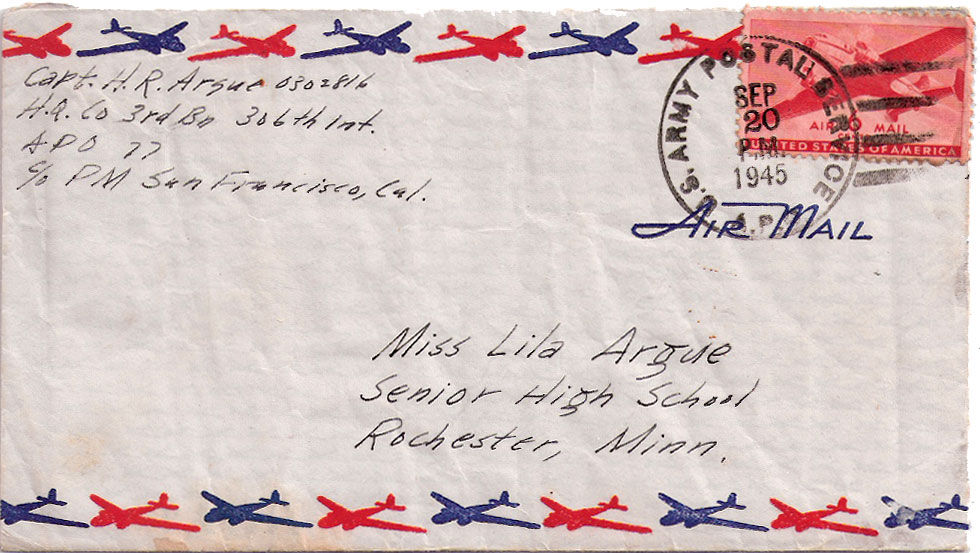 Capt. H. R. Argue 0302816
H.Q. Co 3rd Bn 306th Inf.
APO 77
c/o PM San Francisco, Cal.
U.S. ARMY POSTAL SERVICE
A.P.
SEP
20
P.M.
1945
AIR MAIL
UNITED STATES OF AMERICA
AIR MAIL
Miss Lila Argue
Senior High School
Rochester, Minn.